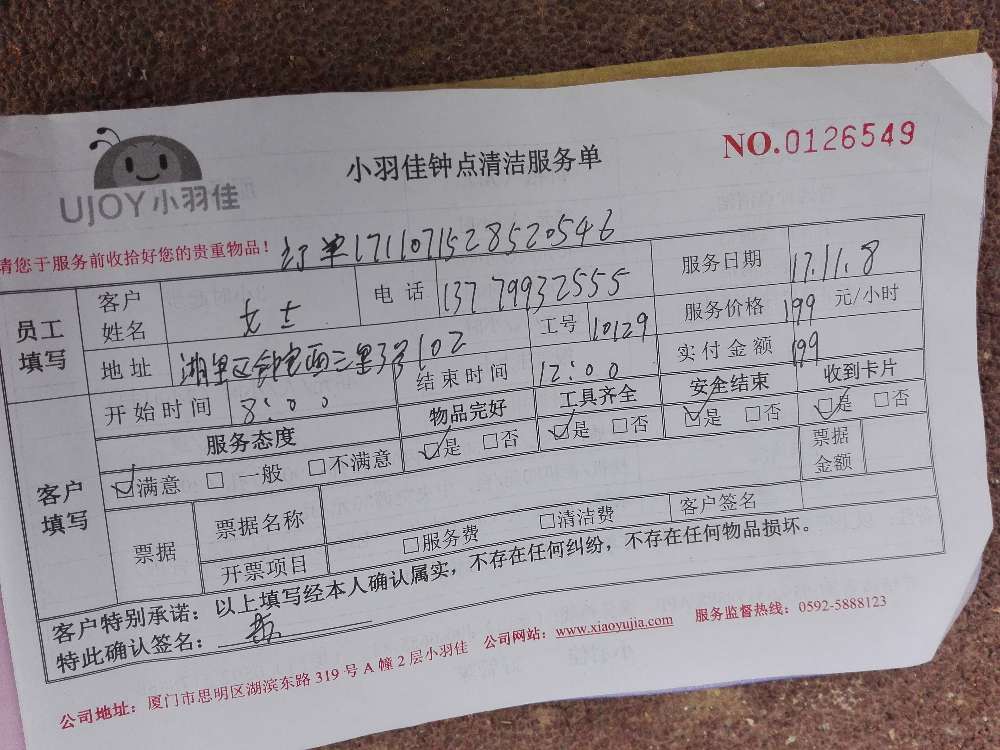 UJOY小羽佳
小羽佳钟点清洁服务单
NO.0126549
请您于服务前收拾好您的贵重物品!
订单1711071528520546
员工填写
客户姓名 女士 电话 13779932555 服务日期 17.11.8
地址 湖里区 西三里3号102 工号 10129 服务价格 199 元/小时
开始时间 8:00 结束时间 12:00 实付金额 199
客户填写
服务态度 物品完好 工具齐全 安全结束 收到卡片
☑满意 □一般 □不满意 ☑是 □否 ☑是 □否 ☑是 □否 ☑是 □否
票据 票据名称 票据金额
开票项目 □服务费 □清洁费 客户签名
客户特别承诺:以上填写经本人确认属实,不存在任何纠纷,不存在任何物品损坏。
特此确认签名:
公司地址:厦门市思明区湖滨东路319号A幢2层小羽佳 公司网站:www.xiaoyujia.com 服务监督热线:0592-5888123